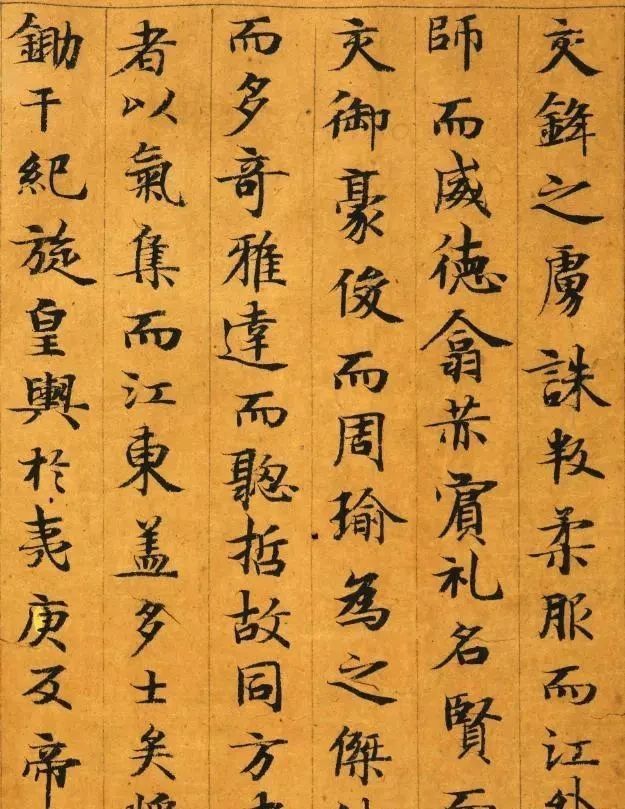 交鋒之虜誅叛柔服而江外
師而威德翕赫賓礼名賢而
交御豪俊而周瑜為之傑
而多奇雅達而聰哲故同方者
者以氣集而江東蓋多士矣將
鋤干紀旋皇輿於夷庚反帝